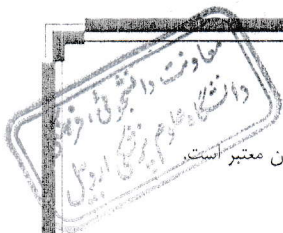 معاونت دانشجویی، فرهنگی
دانشگاه علوم پزشکی اردبیل
ن معتبر است.